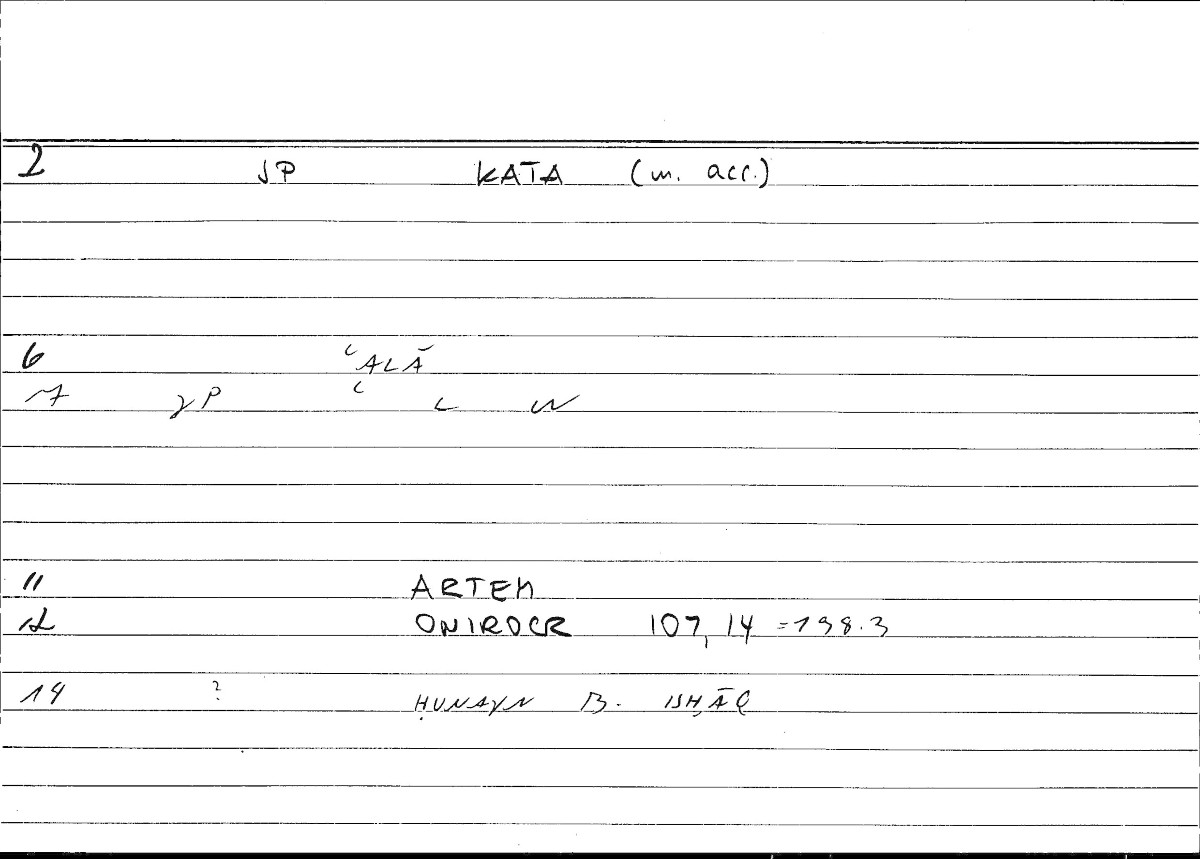 2 JP KATA (m. acc.)
6 ʿALĀ
7 γP ʿ L W
11 ARTEM
12 ONIROCR 107, 14 = 198.3
14 ? ḤUNAYN B. ISḤĀQ